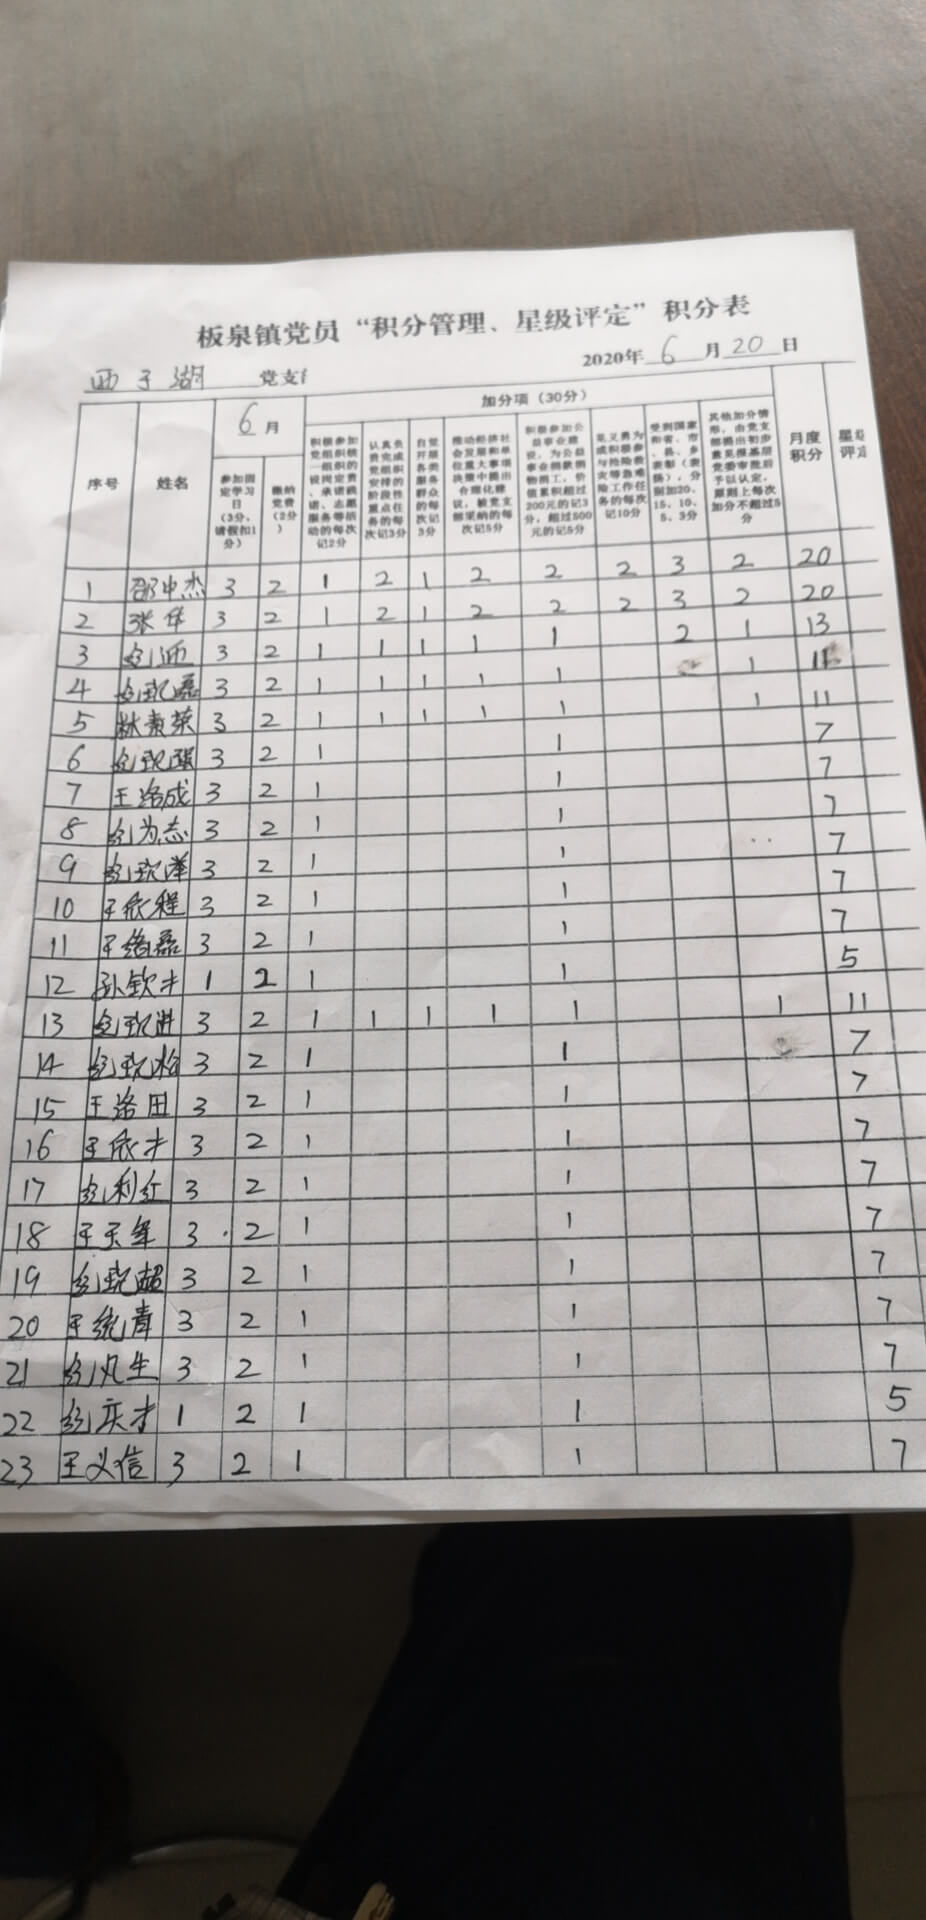 板泉镇党员“积分管理、星级评定”积分表
西子湖 党支部
2020年 6 月 20 日
序号 姓名 6月 加分项（30分） 月度积分 星级评定
参加固定学习日（3分，请假扣1分）
缴纳党费（2分）
积极参加党组织统一组织的设岗定责、承诺践诺、志愿服务等活动的每次记2分
认真负责完成党组织安排的阶段性重点任务的每次记3分
自觉开展各类服务群众的每次记3分
推动经济社会发展和单位重大事项决策中提出合理化建议，被党支部采纳的每次记5分
积极参加公益事业建设，为公益事业捐款捐物捐工，价值累积超过200元的记3分，超过500元的记5分
见义勇为或积极参与抢险救灾等急难险工作任务的每次记10分
受到国家和省、市、县、乡表彰（表扬），分别加20、15、10、5、3分
其他加分情形，由党支部提出初步意见报基层党委审批后予以认定，原则上每次加分不超过5分
1 邵中杰 3 2 1 2 1 2 2 2 3 2 20
2 张华 3 2 1 2 1 2 2 2 3 2 20
3 3 2 1 1 1 1 1 2 1 13
4 3 2 1 1 1 1 1 1 11
5 林素荣 3 2 1 1 1 1 1 1 11
6 3 2 1 1 7
7 王洛成 3 2 1 1 7
8 3 2 1 1 7
9 3 2 1 1 7
10 王依程 3 2 1 1 7
11 王绪磊 3 2 1 1 7
12 孙钦才 1 2 1 1 5
13 3 2 1 1 1 1 1 1 11
14 3 2 1 1 7
15 王洛田 3 2 1 1 7
16 王依才 3 2 1 1 7
17 3 2 1 1 7
18 3 2 1 1 7
19 3 2 1 1 7
20 王统青 3 2 1 1 7
21 3 2 1 1 7
22 1 2 1 1 5
23 王义信 3 2 1 1 7